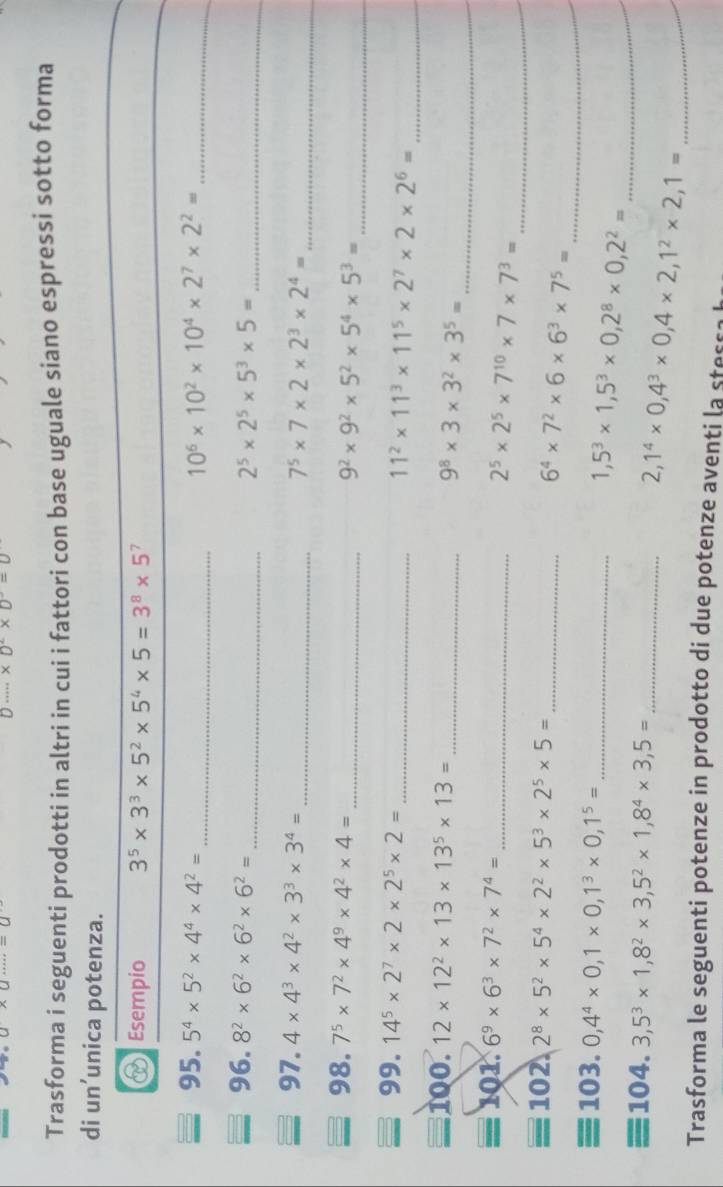 Trasforma i seguenti prodotti in altri in cui i fattori con base uguale siano espressi sotto forma
di un'unica potenza.
Esempio 3⁵ × 3³ × 5² × 5⁴ × 5 = 3⁸ × 5⁷
95. 5⁴ × 5² × 4⁴ × 4² = .......... 10⁶ × 10² × 10⁴ × 2⁷ × 2² = ..........
96. 8² × 6² × 6² × 6² = .......... 2⁵ × 2⁵ × 5³ × 5 = ..........
97. 4 × 4³ × 4² × 3³ × 3⁴ = .......... 7⁵ × 7 × 2 × 2³ × 2⁴ = ..........
98. 7⁵ × 7² × 4⁹ × 4² × 4 = .......... 9² × 9² × 5² × 5⁴ × 5³ = ..........
99. 14⁵ × 2⁷ × 2 × 2⁵ × 2 = .......... 11² × 11³ × 11⁵ × 2⁷ × 2 × 2⁶ = ..........
100. 12 × 12² × 13 × 13⁵ × 13 = .......... 9⁸ × 3 × 3² × 3⁵ = ..........
101. 6⁹ × 6³ × 7² × 7⁴ = .......... 2⁵ × 2⁵ × 7¹⁰ × 7 × 7³ = ..........
102. 2⁸ × 5² × 5⁴ × 2² × 5³ × 2⁵ × 5 = .......... 6⁴ × 7² × 6 × 6³ × 7⁵ = ..........
103. 0,4⁴ × 0,1 × 0,1³ × 0,1⁵ = .......... 1,5³ × 1,5³ × 0,2⁸ × 0,2² = ..........
104. 3,5³ × 1,8² × 3,5² × 1,8⁴ × 3,5 = .......... 2,1⁴ × 0,4³ × 0,4 × 2,1² × 2,1 = ..........
Trasforma le seguenti potenze in prodotto di due potenze aventi la stessa